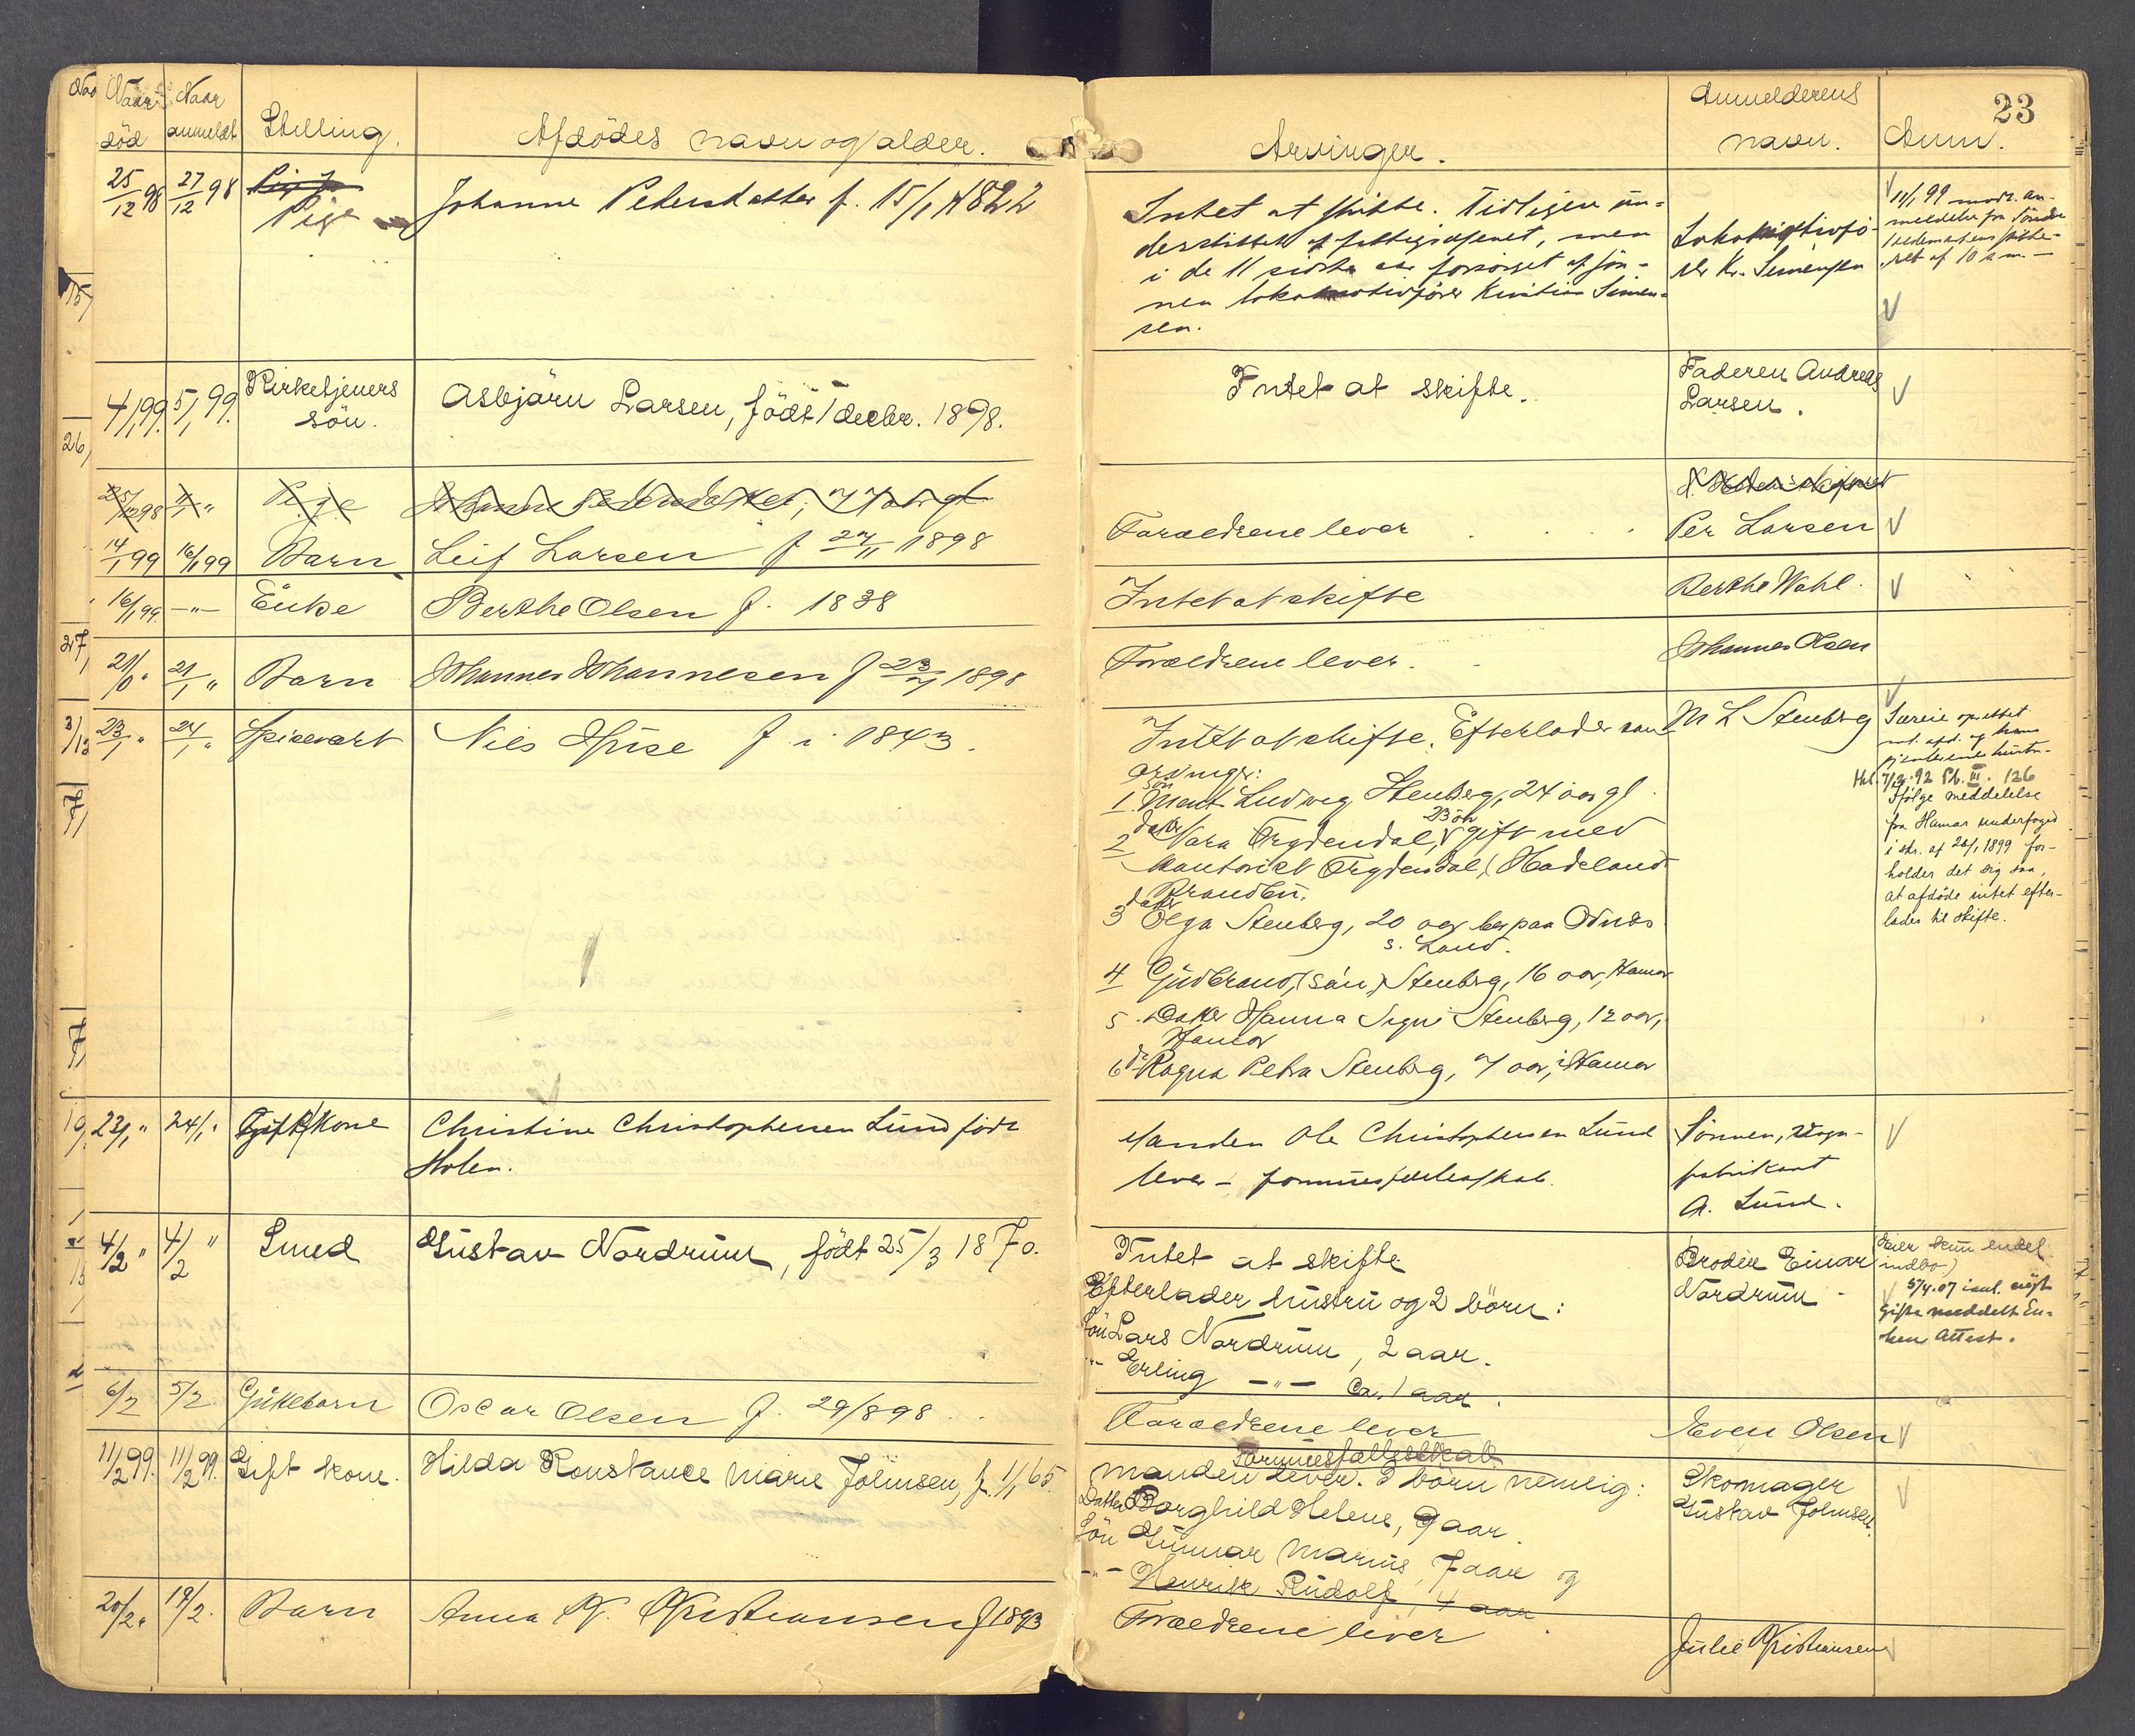 23
Naar død
Naar anmeldt
Stilling.
Afdödes navn og alder.
Arvinger.
Anmelderens navn.
Anm.
25/12 98
27/12 98
Pige
Johanne Pedersdatter f. 15/1 1822
Intet at skifte. Tidligere un-
derstöttet af fattigvæsenet, men
i de 11 sidste aar forsörget af søn-
nen lokomotivfører Kristian Simen-
sen.
Lokomotivfö-
rer Kr. Simensen
11/1 99 modt. an-
meldelse fra Söndre
Hedemarkens skifte-
ret af 10 d.m.
4/1 99.
5/1 99.
Kirketjeners
sön.
Asbjörn Larsen, födt 1 decbr. 1898.
Intet at skifte.
Faderen Andreas
Larsen.
25/12 98
11/1 "
Pige
Johanne Pedersdatter, 77 aar gl
14/1 99
16/1 99
Barn
Leif Larsen f 27/11 1898
Forældrene lever
Per Larsen
16/1 99.
— " —
Enke
Berthe Olsen f. 1838
Intet at skifte
Berthe Wahl.
21/1 "
21/1 "
Barn
Johannes Johannesen f 23/7 1898
Forældrene lever.
Johannes Olsen
23/1 "
24/1 "
Spisevært
Nils f. i 1843.
Intet at skifte. Efterlader som
arvinger:
1. Sön Ludvig Stenberg, 24 aar gl.
2 datter Nara Trydendal, 23 aar gift med
kontorist Trydendal, Hadeland
Brandbu.
3 datter Olga Stenberg, 20 aar bor paa Odnæs
S. Land.
4 Gudbrand, (sön) Stenberg, 16 aar, Hamar
5. Datter Hanna Signi Stenberg, 12 aar,
Hamar
6 d. Ragna Petra Stenberg, 7 aar, i Hamar
M L Stenberg
Særeie oprettet
ml. afd. og hans
gjenlevende hustru
7/12 92 Pb. III. 126
Ifølge meddelelse
fra Hamar underfoged
i skr. af 28/1 1899 for-
holder det sig saa,
at afdöde intet efter-
lader til skifte.
23/1 "
24/1 "
Gift Kone
Christine Christophersen Lund född
Holen.
Manden Ole Christophersen Lund
lever – formuesfællesskab.
Sönnen, Vogn-
fabrikant
A. Lund.
4/2 "
4/2 "
Smed
Gustav Nordrum, födt 25/3 1870.
Intet at skifte
Efterlader hustru og 2 börn:
Sön Lars Nordrum, 2 aar.
" Erling — " — Ca. 1 aar.
Broder Einar
Nordrum
(Eier kun endel
indbo.)
5/4.07
Gifte meddelt En-
ken Attest.
6/2
5/2
Gikebarn
Oscar Olsen f. 29/8 98
Forældrene lever
Even Olsen
11/2 99.
11/2 99.
Gift kone.
Hilda Konstance Marie Johnsen, f. 1/1 65.
Formuesfællesskab
Manden lever. 3 börn nemlig:
Datter Borghild Helene, 9 aar.
Sön Gunnar Marius, 7 aar og
— " — Henrik Rudolf, 4 aar.
Skomager
Gustav Johnsen.
20/2 "
19/2.
Barn
Anna K. Kristiansen f 1893
Forældrene lever
Julie Kristiansen